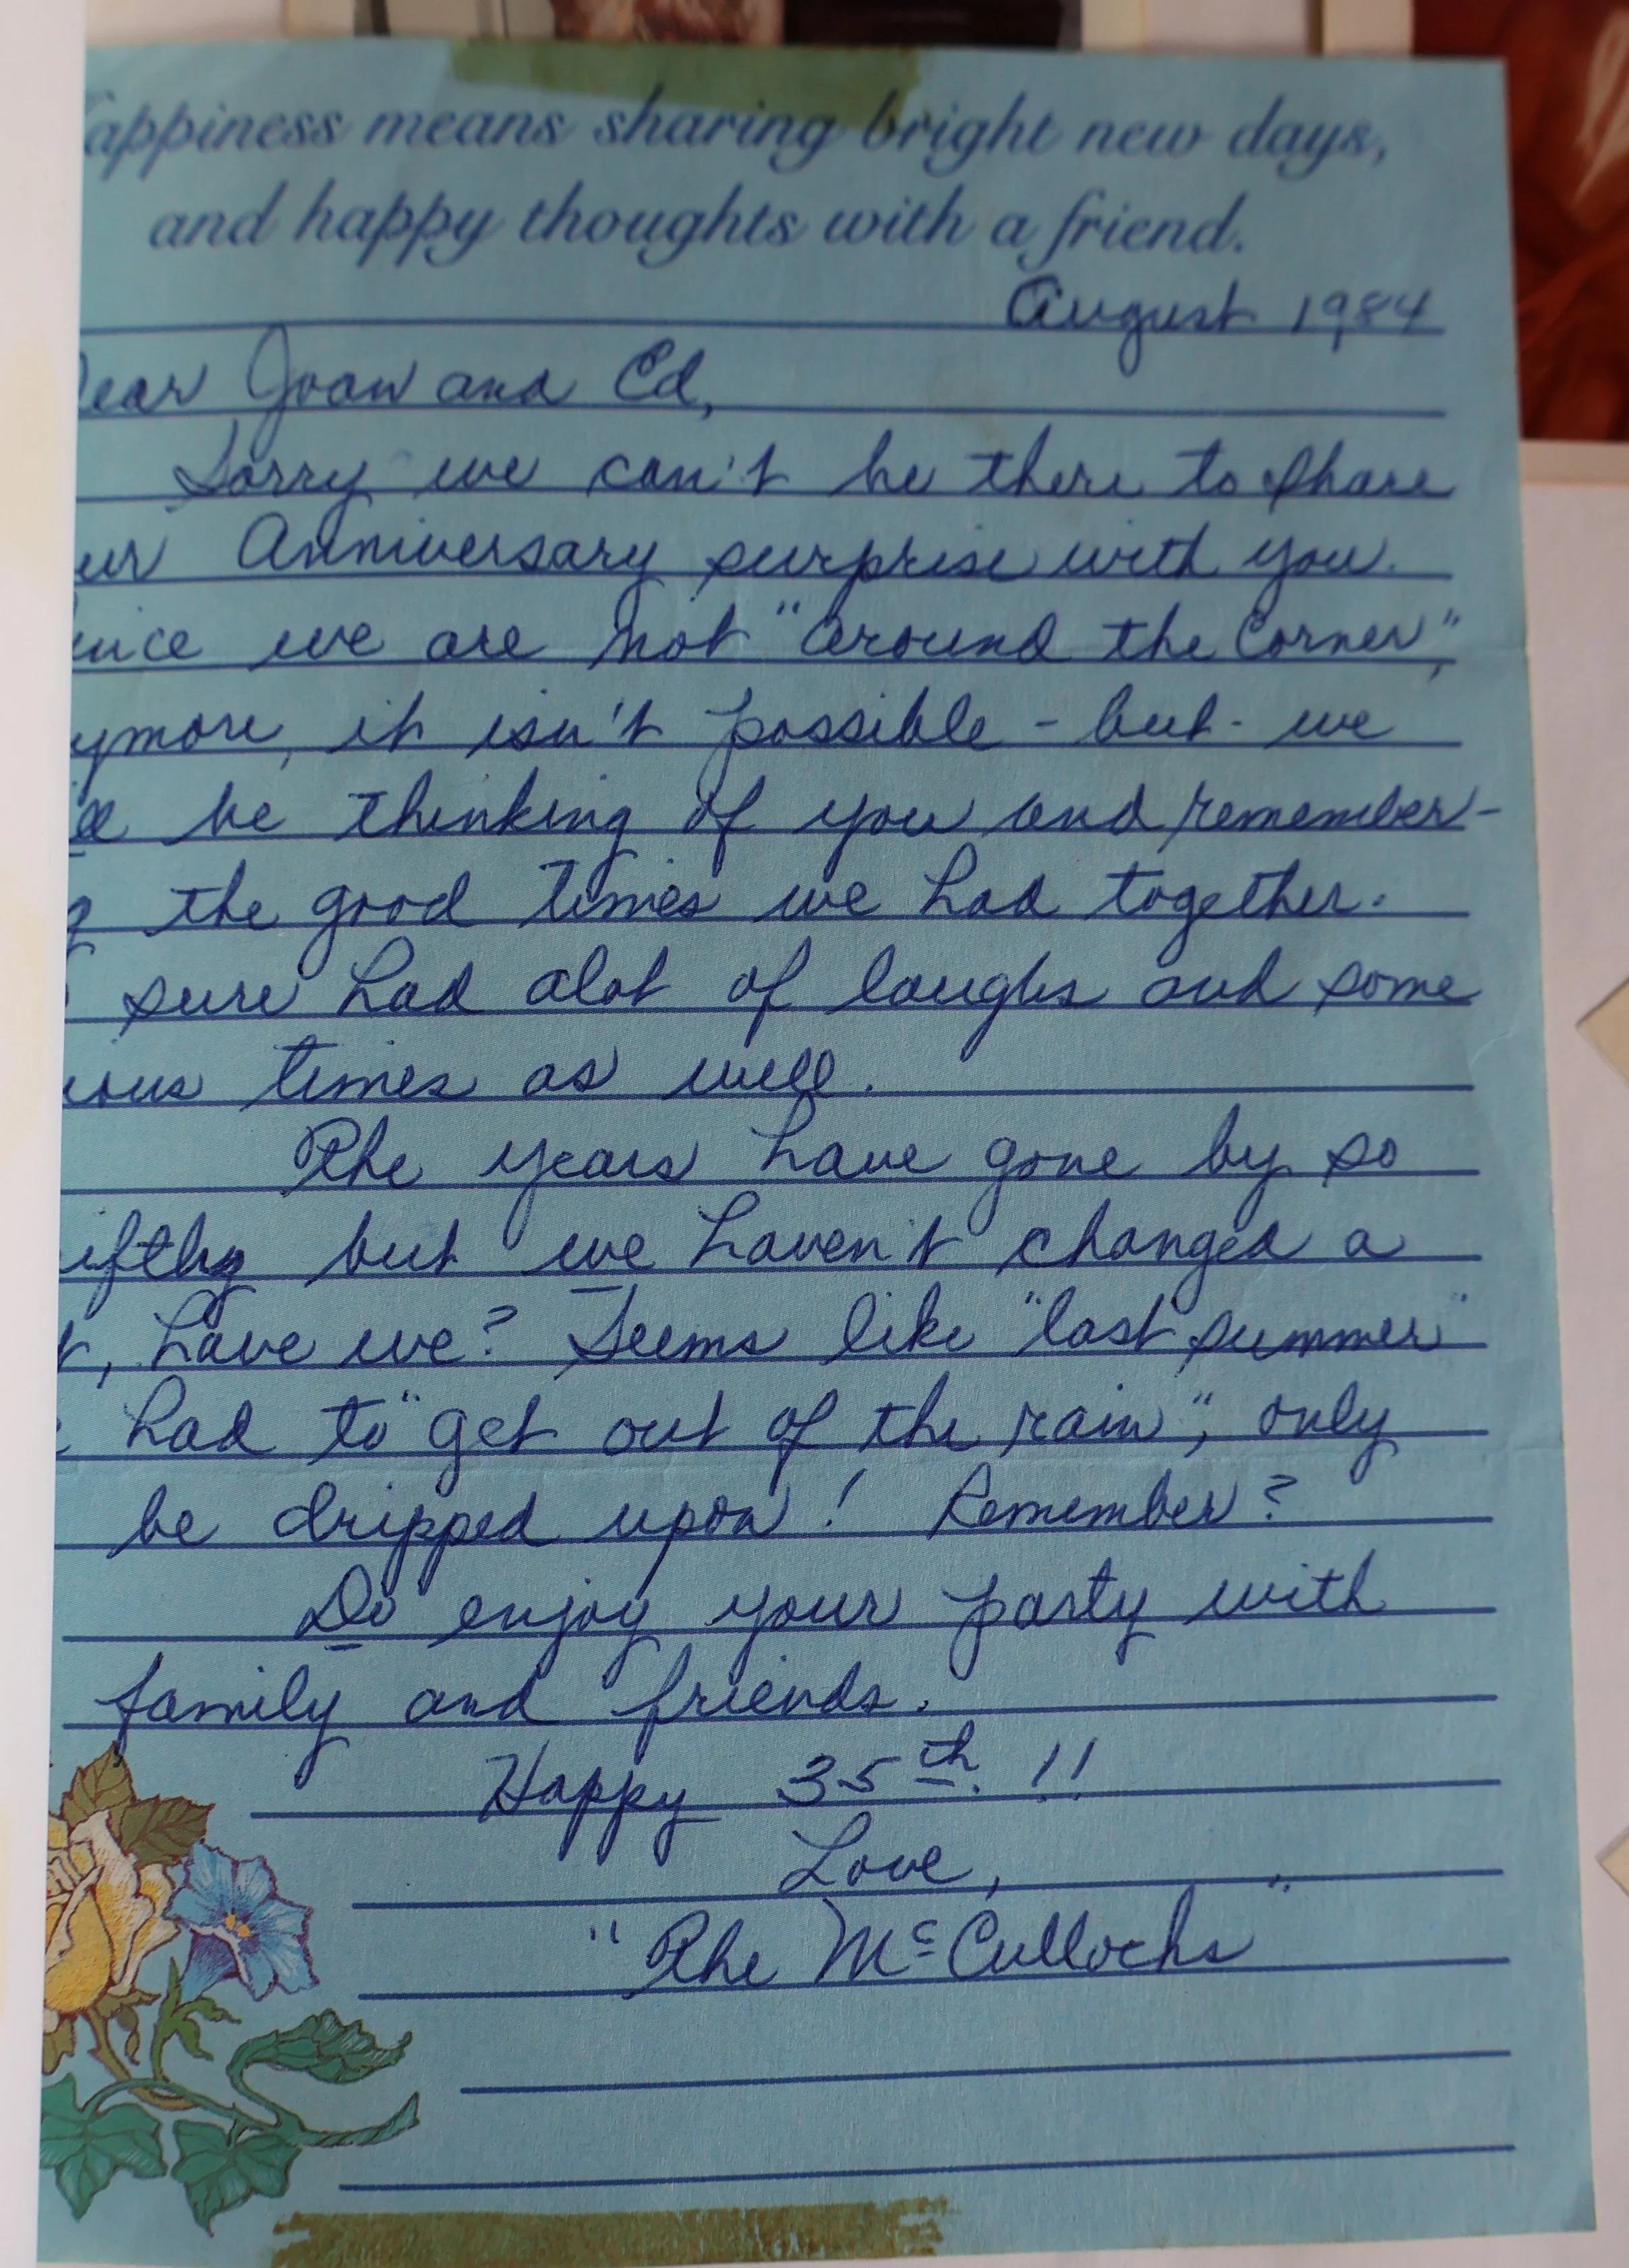 appiness means sharing bright new days,
and happy thoughts with a friend.
August 1984
Dear Joan and Ed,
Sorry we can't be there to share
ur Anniversary surprise with you.
ince we are not "around the Corner",
ymore, it isn't possible - but - we
ll be thinking of you and remember-
g the good times we had together.
sure had alot of laughs and some
ious times as well.
The years have gone by so
iftly but we haven't changed a
t, have we? Seems like "last summer"
e had to "get out of the rain", only
be dripped upon! Remember?
Do enjoy your party with
family and friends.
Happy 35th. !!
Love,
"The McCullochs"